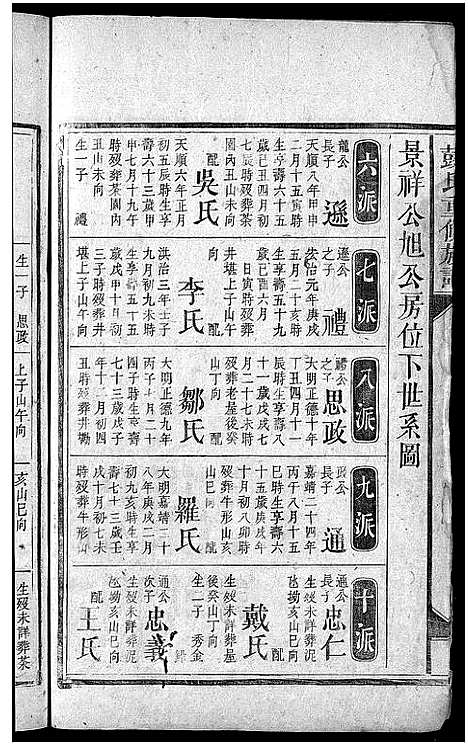 景祥公旭公房位下世系圖
六派
龍公
長子
遜
天順八年甲申
二月十五寅時
生享壽六十五
歲己丑四月初
七辰時殁葬茶
園內丑山未向
配
吳氏
天順六年正月
初五辰時生享
壽六十三歲甲
申七月十九午
時殁葬茶園內
丑山未向
生一子 禮
七派
遜公
之子
禮
弘治元年庚戌
五月二十亥時
生享壽五十九
歲己酉六月
日寅時殁葬
井堪上子山午向
配
李氏
洪治三年壬子
九月初九未時
生享壽五十五
歲戌甲十月初
三子時殁葬井
堪上子山午向
生一子 思政
八派
禮公
之子
思政
大明正德十年
丁丑四月十一
辰時生享壽八
十一歲戊戌七
月二十七未時
殁葬老屋後癸
山丁向 配
鄒氏
大明正德九年
丙子七月二十
四子時生享壽
七十三歲戊子
年十二月初四
丑時殁葬井墈
上子山午向
九派
政公
長子
通
嘉靖二十四年
丙午八月十五
巳時生享壽六
十五歲庚戌年
十月初八卯時
殁葬牛形山亥
山巳向 配
羅氏
大明嘉靖二十
八年庚戌二月
初九亥時生享
壽七十三歲壬
戌十月初七未
時殁葬牛形山
亥山巳向
十派
通公
長子
忠仁
生殁未詳葬泥
𡊠坳亥山巳向
配
戴氏
生殁未詳葬屋
後癸山丁向
生一子 秀金
通公
次子
忠義
生殁未詳葬泥
𡊠坳亥山巳向
配
王氏
生殁未詳葬茶